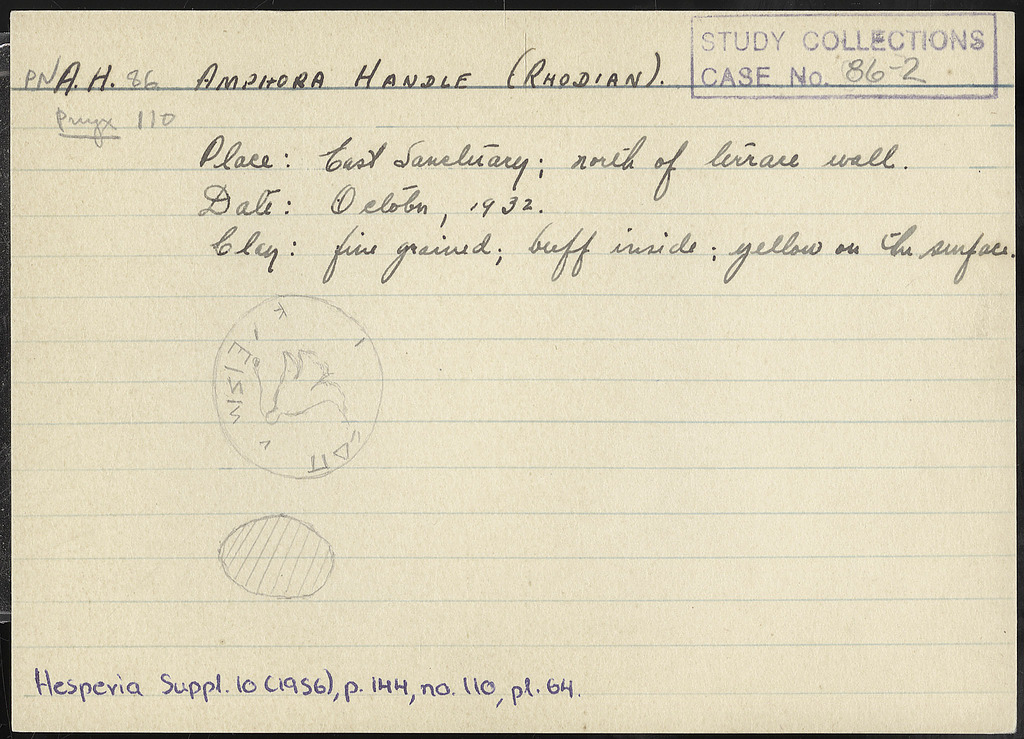 STUDY COLLECTIONS
CASE No. 86-2
PN A.H. 86 AMPHORA HANDLE (RHODIAN).
Pnyx 110
Place: East Sanctuary; north of terrace wall.
Date: October, 1932.
Clay: fine grained; buff inside; yellow on the surface.
Hesperia Suppl. 10 (1956), p. 144, no. 110, pl. 64.